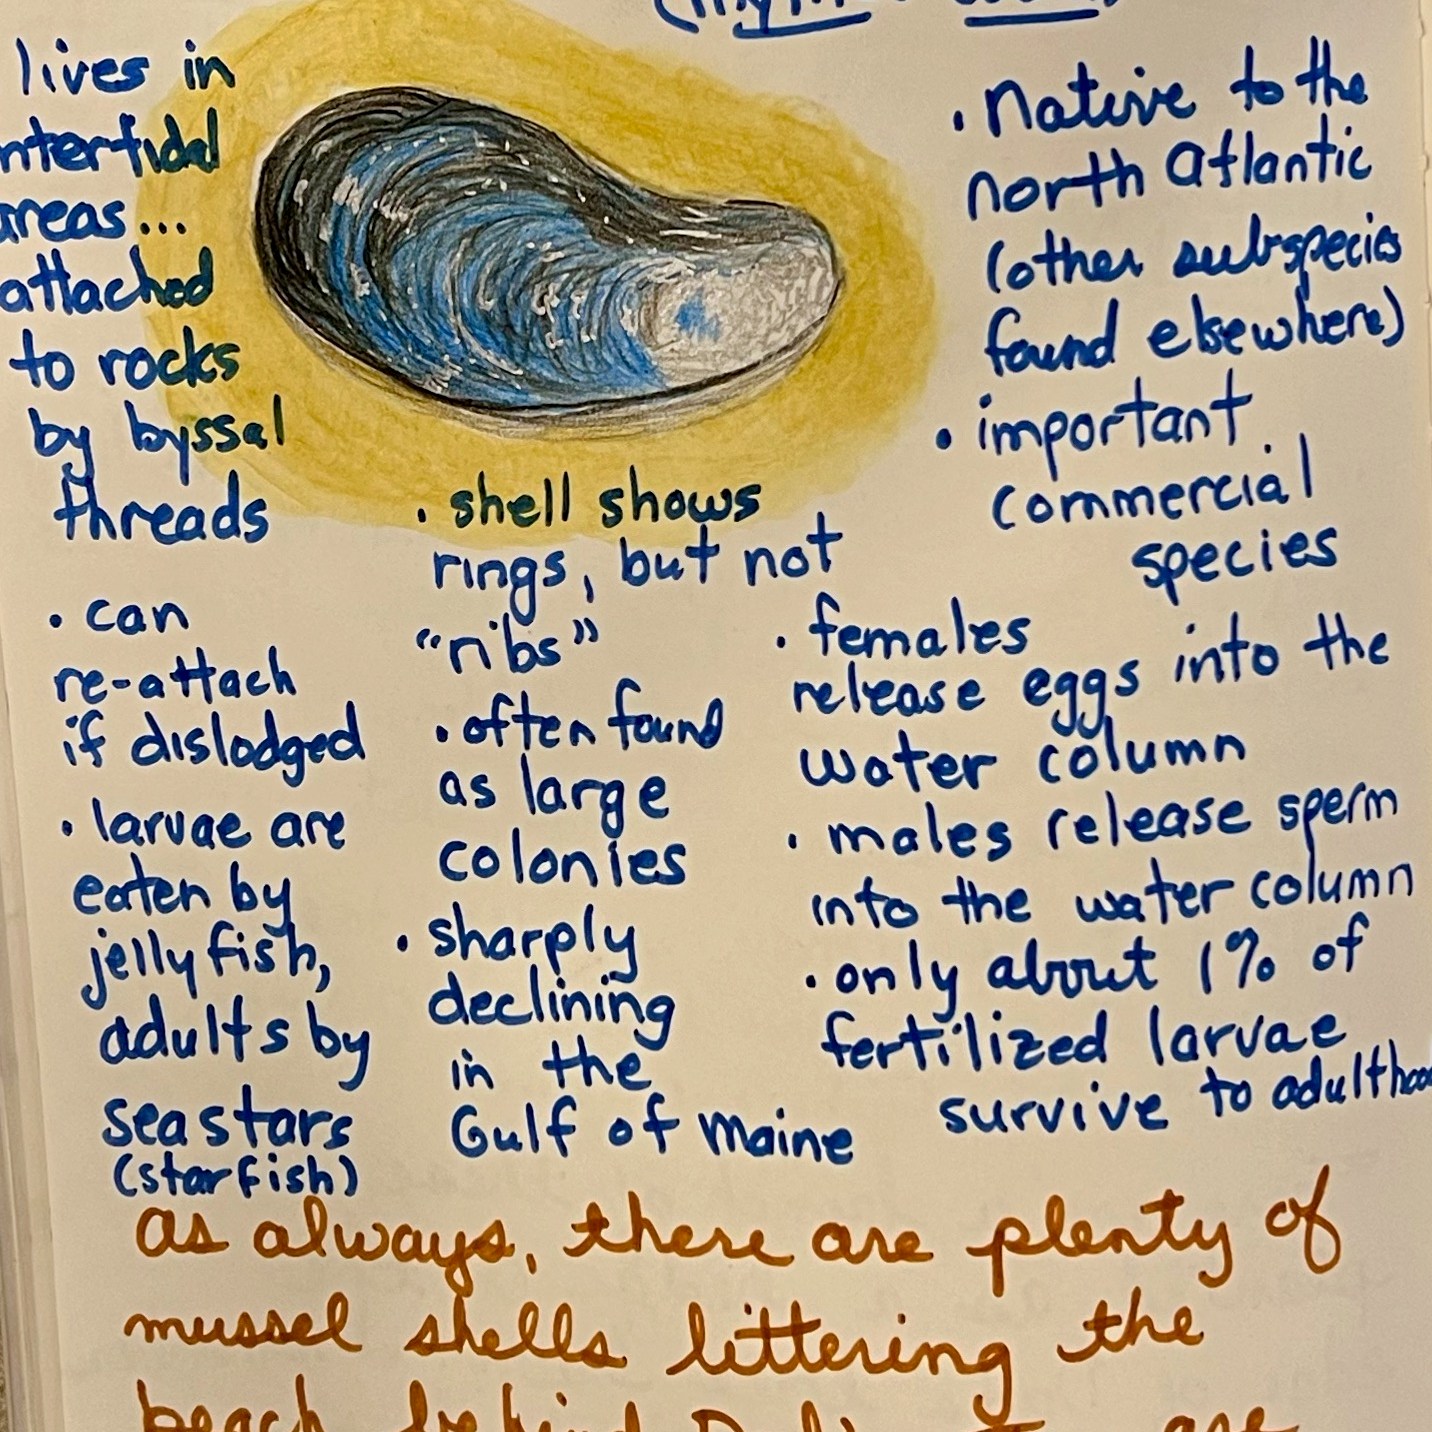 lives in
intertidal
areas...
attached
to rocks
by byssal
threads
• can
re-attach
if dislodged
• larvae are
eaten by
jellyfish,
adults by
sea stars
(starfish)
• shell shows
rings, but not
"ribs"
• often found
as large
colonies
• sharply
declining
in the
Gulf of Maine
• Native to the
north Atlantic
(other subspecies
found elsewhere)
• important
commercial
species
• females
release eggs into the
water column
• males release sperm
into the water column
• only about 1% of
fertilized larvae
survive to adulthood
As always, there are plenty of
mussel shells littering the
beach behind